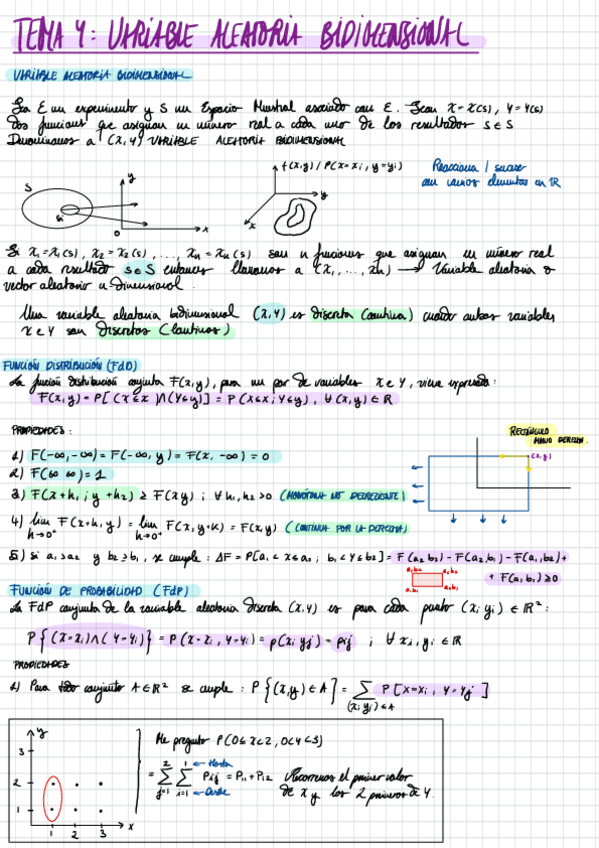 TEMA 4: VARIABLE ALEATORIA BIDIMENSIONAL
VARIABLE ALEATORIA BIDIMENSIONAL
Sea E un experimento y S un Espacio Muestral asociado con E. Sean X=X(s), Y=Y(s)
dos funciones que asignan un número real a cada uno de los resultados s∈S
Denominamos a (X,Y) VARIABLE ALEATORIA BIDIMENSIONAL
S
si
y
0
x
f(x,y) / P(X=xi, y=yi)
y
x
Reacciona / suceso
con varios elementos en ℝ
Si X1=X1(s), X2=X2(s), ..., Xn=Xn(s) son n funciones que asignan un número real
a cada resultado s∈S entonces llamamos a (X1,...,Xn) → Variable aleatoria o
vector aleatorio n-dimensional.
Una variable aleatoria bidimensional (X,Y) es discreta (continua) cuando ambas variables
X e Y son discretas (continuas)
FUNCIÓN DISTRIBUCIÓN (FdD)
La función distribución conjunta F(x,y), para un par de variables X e Y, viene expresada:
F(x,y)=P[(X≤x)∧(Y≤y)] = P(X≤x; Y≤y), ∀(x,y)∈ℝ
PROPIEDADES:
RECTÁNGULO
MANO DERECHA.
(x,y)
1) F(-∞,-∞)=F(-∞,y)=F(x,-∞)=0
2) F(∞ ∞)=1
3) F(x+h1; y+h2) ≥ F(x y); ∀h1,h2>0 (MONÓTONA NO DECRECIENTE)
4) lim h→0+ F(x+h,y) = lim h→0+ F(x,y+k) = F(x,y) (CONTINUA POR LA DERECHA)
5) Si a2>a1 y b2≥b1, se cumple: ΔF=P[a1<X≤a2; b1<Y≤b2]= F(a2 b2)-F(a2,b1)-F(a1,b2)+
+ F(a1 b1)≥0
a1b2
a2b2
a1b1
a2b1
FUNCIÓN DE PROBABILIDAD (FdP)
La FdP conjunta de la variable aleatoria discreta (X,Y) es para cada punto (xi yi) ∈ ℝ²:
P{(X=xi)∧(Y=yi)} = P(X=xi, Y=yi) = p(xi yj) = pij ; ∀ xi, yi ∈ ℝ
PROPIEDADES
1) Para todo conjunto A∈ℝ² se cumple: P{(X,Y)∈A} = ∑ (xi yi)∈A P[X=xi, Y=yj]
y
3
2
1
1 2 3
x
Me pregunto P(0≤X<2, 0<Y<3)
= ∑ j=1 2 ∑ i=1 1 Pij = P11+P12
← Hasta
← Desde
Recorremos el primer valor
de X y los 2 primeros de Y.